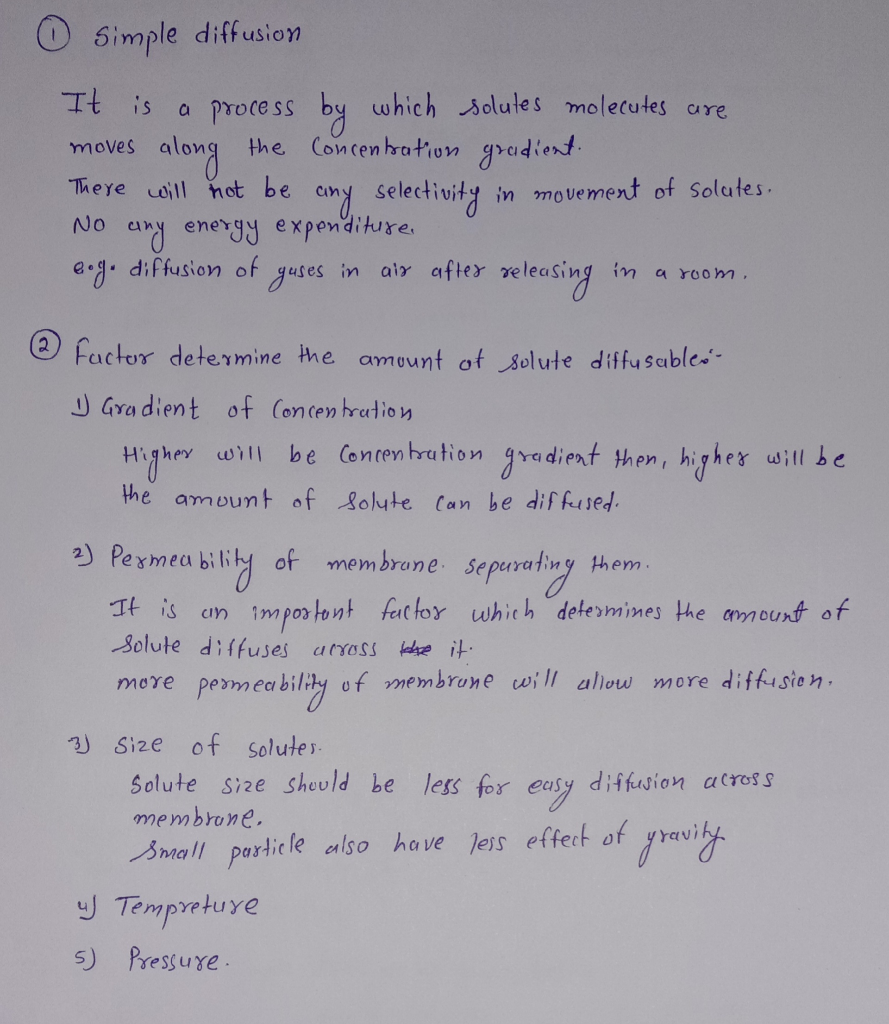 ① Simple diffusion
It is a process by which solutes molecutes are
moves along the Concentration gradient.
There will not be any selectivity in movement of Solutes.
No any energy expenditure.
e.g. diffusion of gases in air after releasing in a room.
② Factor determine the amount of solute diffusable:-
1) Gradient of Concentration
Higher will be Concentration gradient then, higher will be
the amount of Solute can be diffused.
2) Permeability of membrane separating them.
It is an important factor which determines the amount of
Solute diffuses across it.
more permeability of membrane will allow more diffusion.
3) Size of solutes.
Solute size should be less for easy diffusion across
membrane.
Small particle also have less effect of gravity
4) Tempreture
5) Pressure.